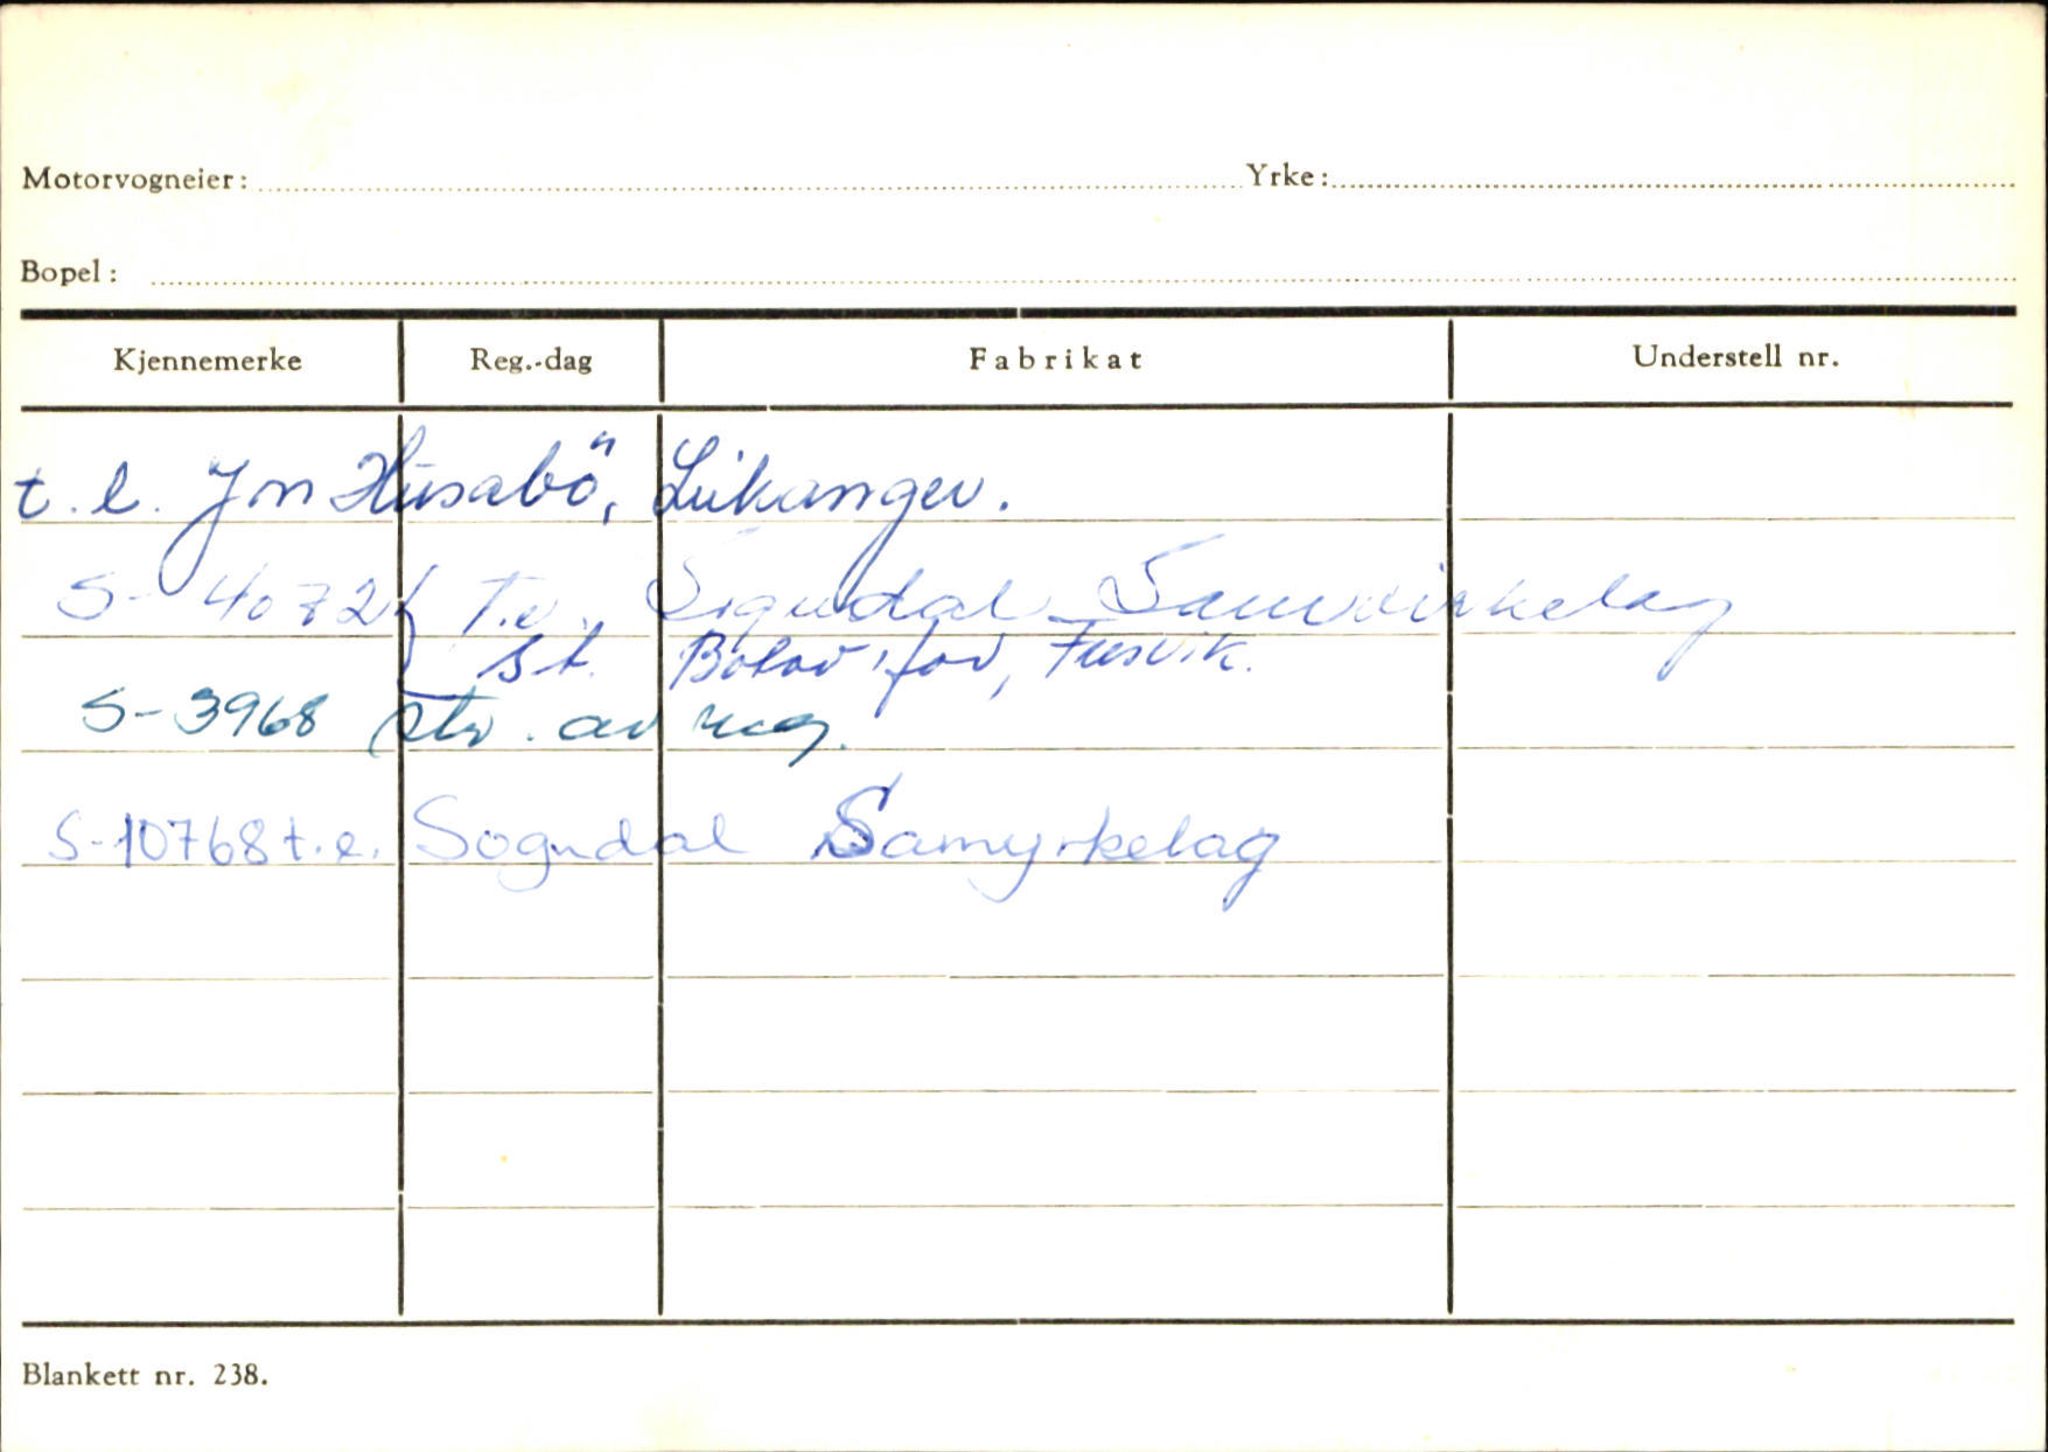 Motorvogneier: Yrke:
Bopel:
Kjennemerke Reg.-dag Fabrikat Understell nr.
t.e. Jon Husabö, Leikanger.
S-4072 T.e. Sogndal Samvirkelag
st.
S-3968 str. av reg.
S-10768 t.e. Sogndal Samyrkelag
Blankett nr. 238.